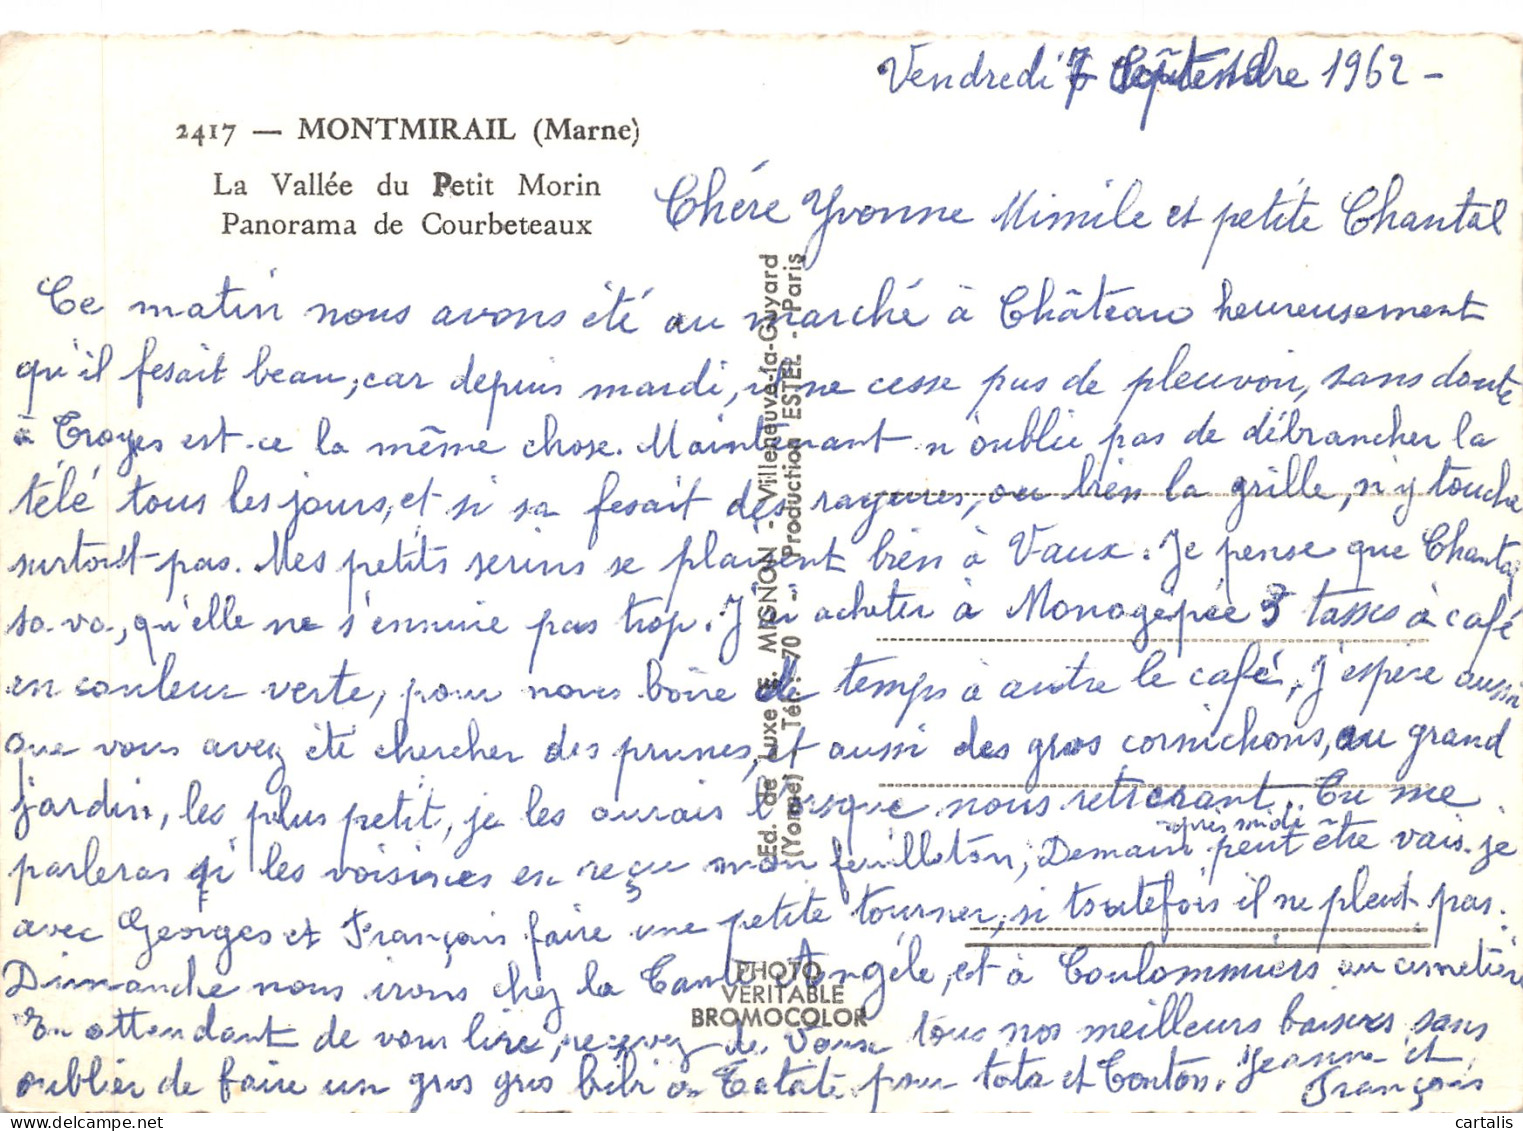 Vendredi 7 Septembre 1962 -
2417 — MONTMIRAIL (Marne)
La Vallée du Petit Morin
Panorama de Courbeteaux
Chére Yvonne Mimile et petite Chantal
Ce matin nous avons été au marché à Château heureusement
qu'il fesait beau, car depuis mardi, il ne cesse pas de pleuvoir, sans doute
à Troyes est-ce la même chose. Maintenant n'oublie pas de débrancher la
télé tous les jours, et si sa fesait des rayures, ou bien la grille, n'y touche
surtout pas. Mes petits serins se plaisent bien à Vaux. Je pense que Chantal
sa va, qu'elle ne s'ennuie pas trop. J'ai acheter à Monogépée 3 tasses à café
en couleur verte, pour nous boire de temps à autre le café, j'espère aussi
que vous avez été chercher des prunes, et aussi des gros cornichons, au grand
jardin, les plus petit, je les aurais l'orsque nous retrerant. Tu me
parleras si les voisines en reçu mon feuilleton, Demain après midi peut être vais-je
avec Georges et François faire une petite tourner, si toutefois il ne pleut pas.
Dimanche nous irons chez la Tante Angéle, et à Coulommiers au cimetière
En attendant de vous lire, recevez de Vaux tous nos meilleurs baisers sans
oublier de faire un gros gros bibi a Tatate pour tata et Tonton. Jeanne et
François
Ed. de Luxe E. MIGNON - Villeneuve-la-Guyard
(Yonne) Tél. : 70 — Production "ESTEL" - Paris
PHOTO
VERITABLE
BROMOCOLOR
cartalis.com